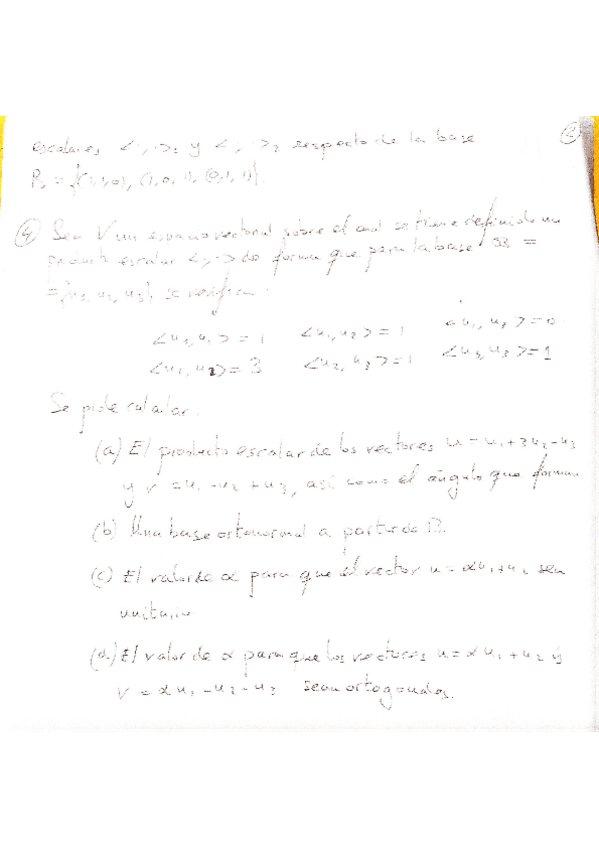 escalares <·,·>₁ y <·,·>₂ respecto de la base
B = {(1,1,0), (1,0,1), (0,1,1)}.
④ Sea V un espacio vectorial sobre el cual se tiene definido un
producto escalar <·,·> de forma que para la base B =
= {u₁, u₂, u₃} se verifica:
<u₁, u₁> = 1 <u₁, u₂> = 1 <u₁, u₃> = 0
<u₂, u₂> = 3 <u₂, u₃> = 1 <u₃, u₃> = 1
Se pide calcular:
(a) El producto escalar de los vectores u = u₁ + 3u₂ - u₃
y v = u₁ - u₂ + u₃, así como el ángulo que forman
(b) Una base ortonormal a partir de B.
(c) El valor de α para que el vector u = αu₁ + u₂ sea
unitario
(d) El valor de α para que los vectores u = αu₁ + u₂ y
v = αu₁ - u₂ - u₃ sean ortogonales.